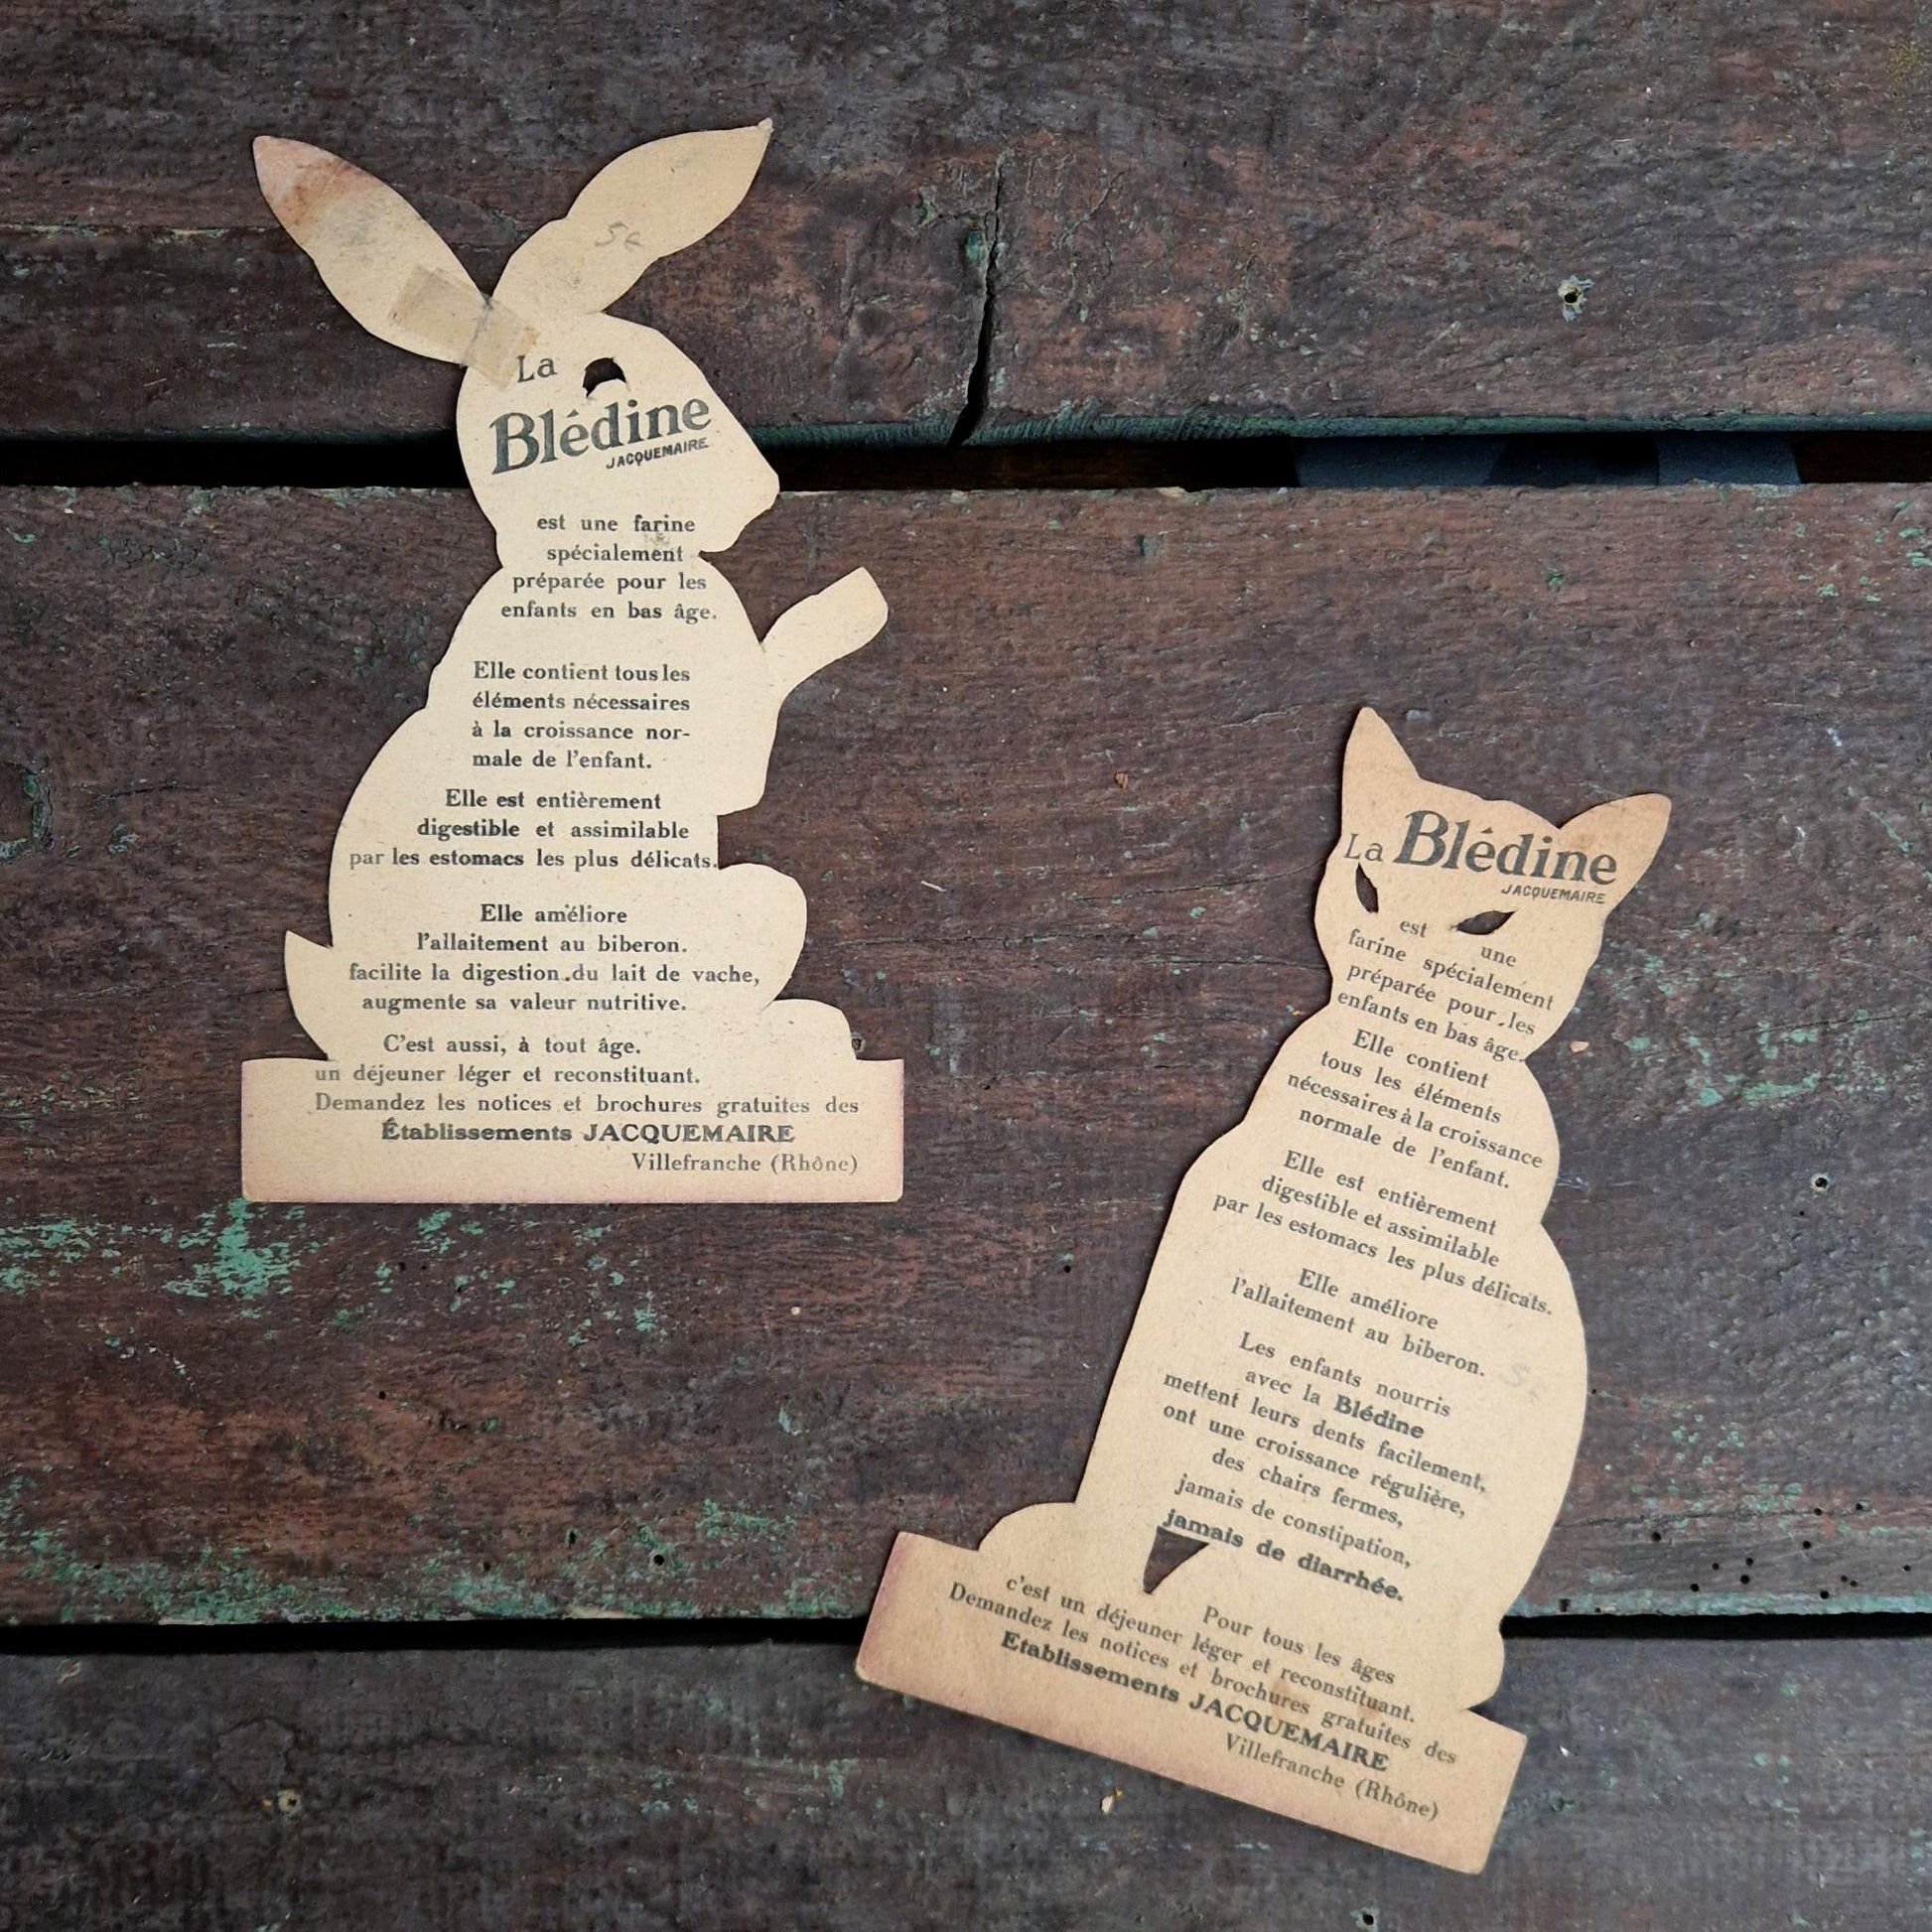 5c
La
Blédine
JACQUEMAIRE
est une farine
spécialement
préparée pour les
enfants en bas âge.
Elle contient tous les
éléments nécessaires
à la croissance nor-
male de l'enfant.
Elle est entièrement
digestible et assimilable
par les estomacs les plus délicats.
Elle améliore
l'allaitement au biberon.
facilite la digestion du lait de vache,
augmente sa valeur nutritive.
C'est aussi, à tout âge.
un déjeuner léger et reconstituant.
Demandez les notices et brochures gratuites des
Établissements JACQUEMAIRE
Villefranche (Rhône)
La Blédine
JACQUEMAIRE
est une
farine spécialement
préparée pour les
enfants en bas âge.
Elle contient
tous les éléments
nécessaires à la croissance
normale de l'enfant.
Elle est entièrement
digestible et assimilable
par les estomacs les plus délicats.
Elle améliore
l'allaitement au biberon.
Les enfants nourris
avec la Blédine
mettent leurs dents facilement,
ont une croissance régulière,
des chairs fermes,
jamais de constipation,
jamais de diarrhée.
Pour tous les âges
c'est un déjeuner léger et reconstituant.
Demandez les notices et brochures gratuites des
Etablissements JACQUEMAIRE
Villefranche (Rhône)